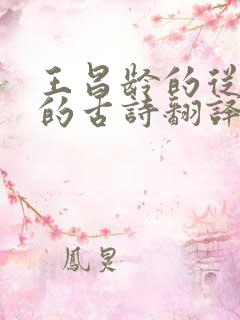 王昌龄的從
的古詩翻譯
鳳炅